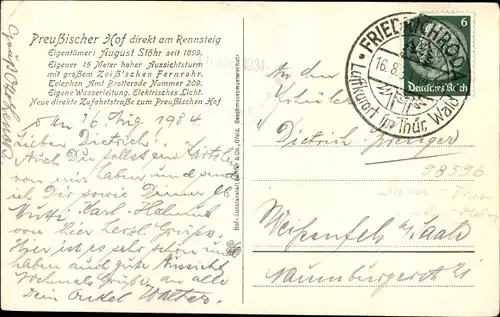 Preußischer Hof direkt am Rennsteig
Eigentümer: August Stöhr seit 1899.
Eigener 15 Meter hoher Aussichtsturm
mit großem Zeiß'schen Fernrohr.
Telephon Amt Brotterode Nummer 209.
Eigene Wasserleitung. Elektrisches Licht.
Neue direkte Zufahrtstraße zum Preußischen Hof
16 Aug 1934
Lieben Dietrich!
Auch Du sollst
von mir haben und
ich Dir sowie Deiner
Mutti Karl, Helmut
von hier herzl Grüße.
Hier ist es sehr schön und
haben auch gute Aussicht
Nochmals Grüße an alle
Dein Onkel Walter.
FRIEDRICHRODA
16.8.
Luftkurort im Thür. Wald
6
Deutsches Reich
An den
Schüler
Dietrich
Weißenfels a/Saale
Naumburgerstr 21